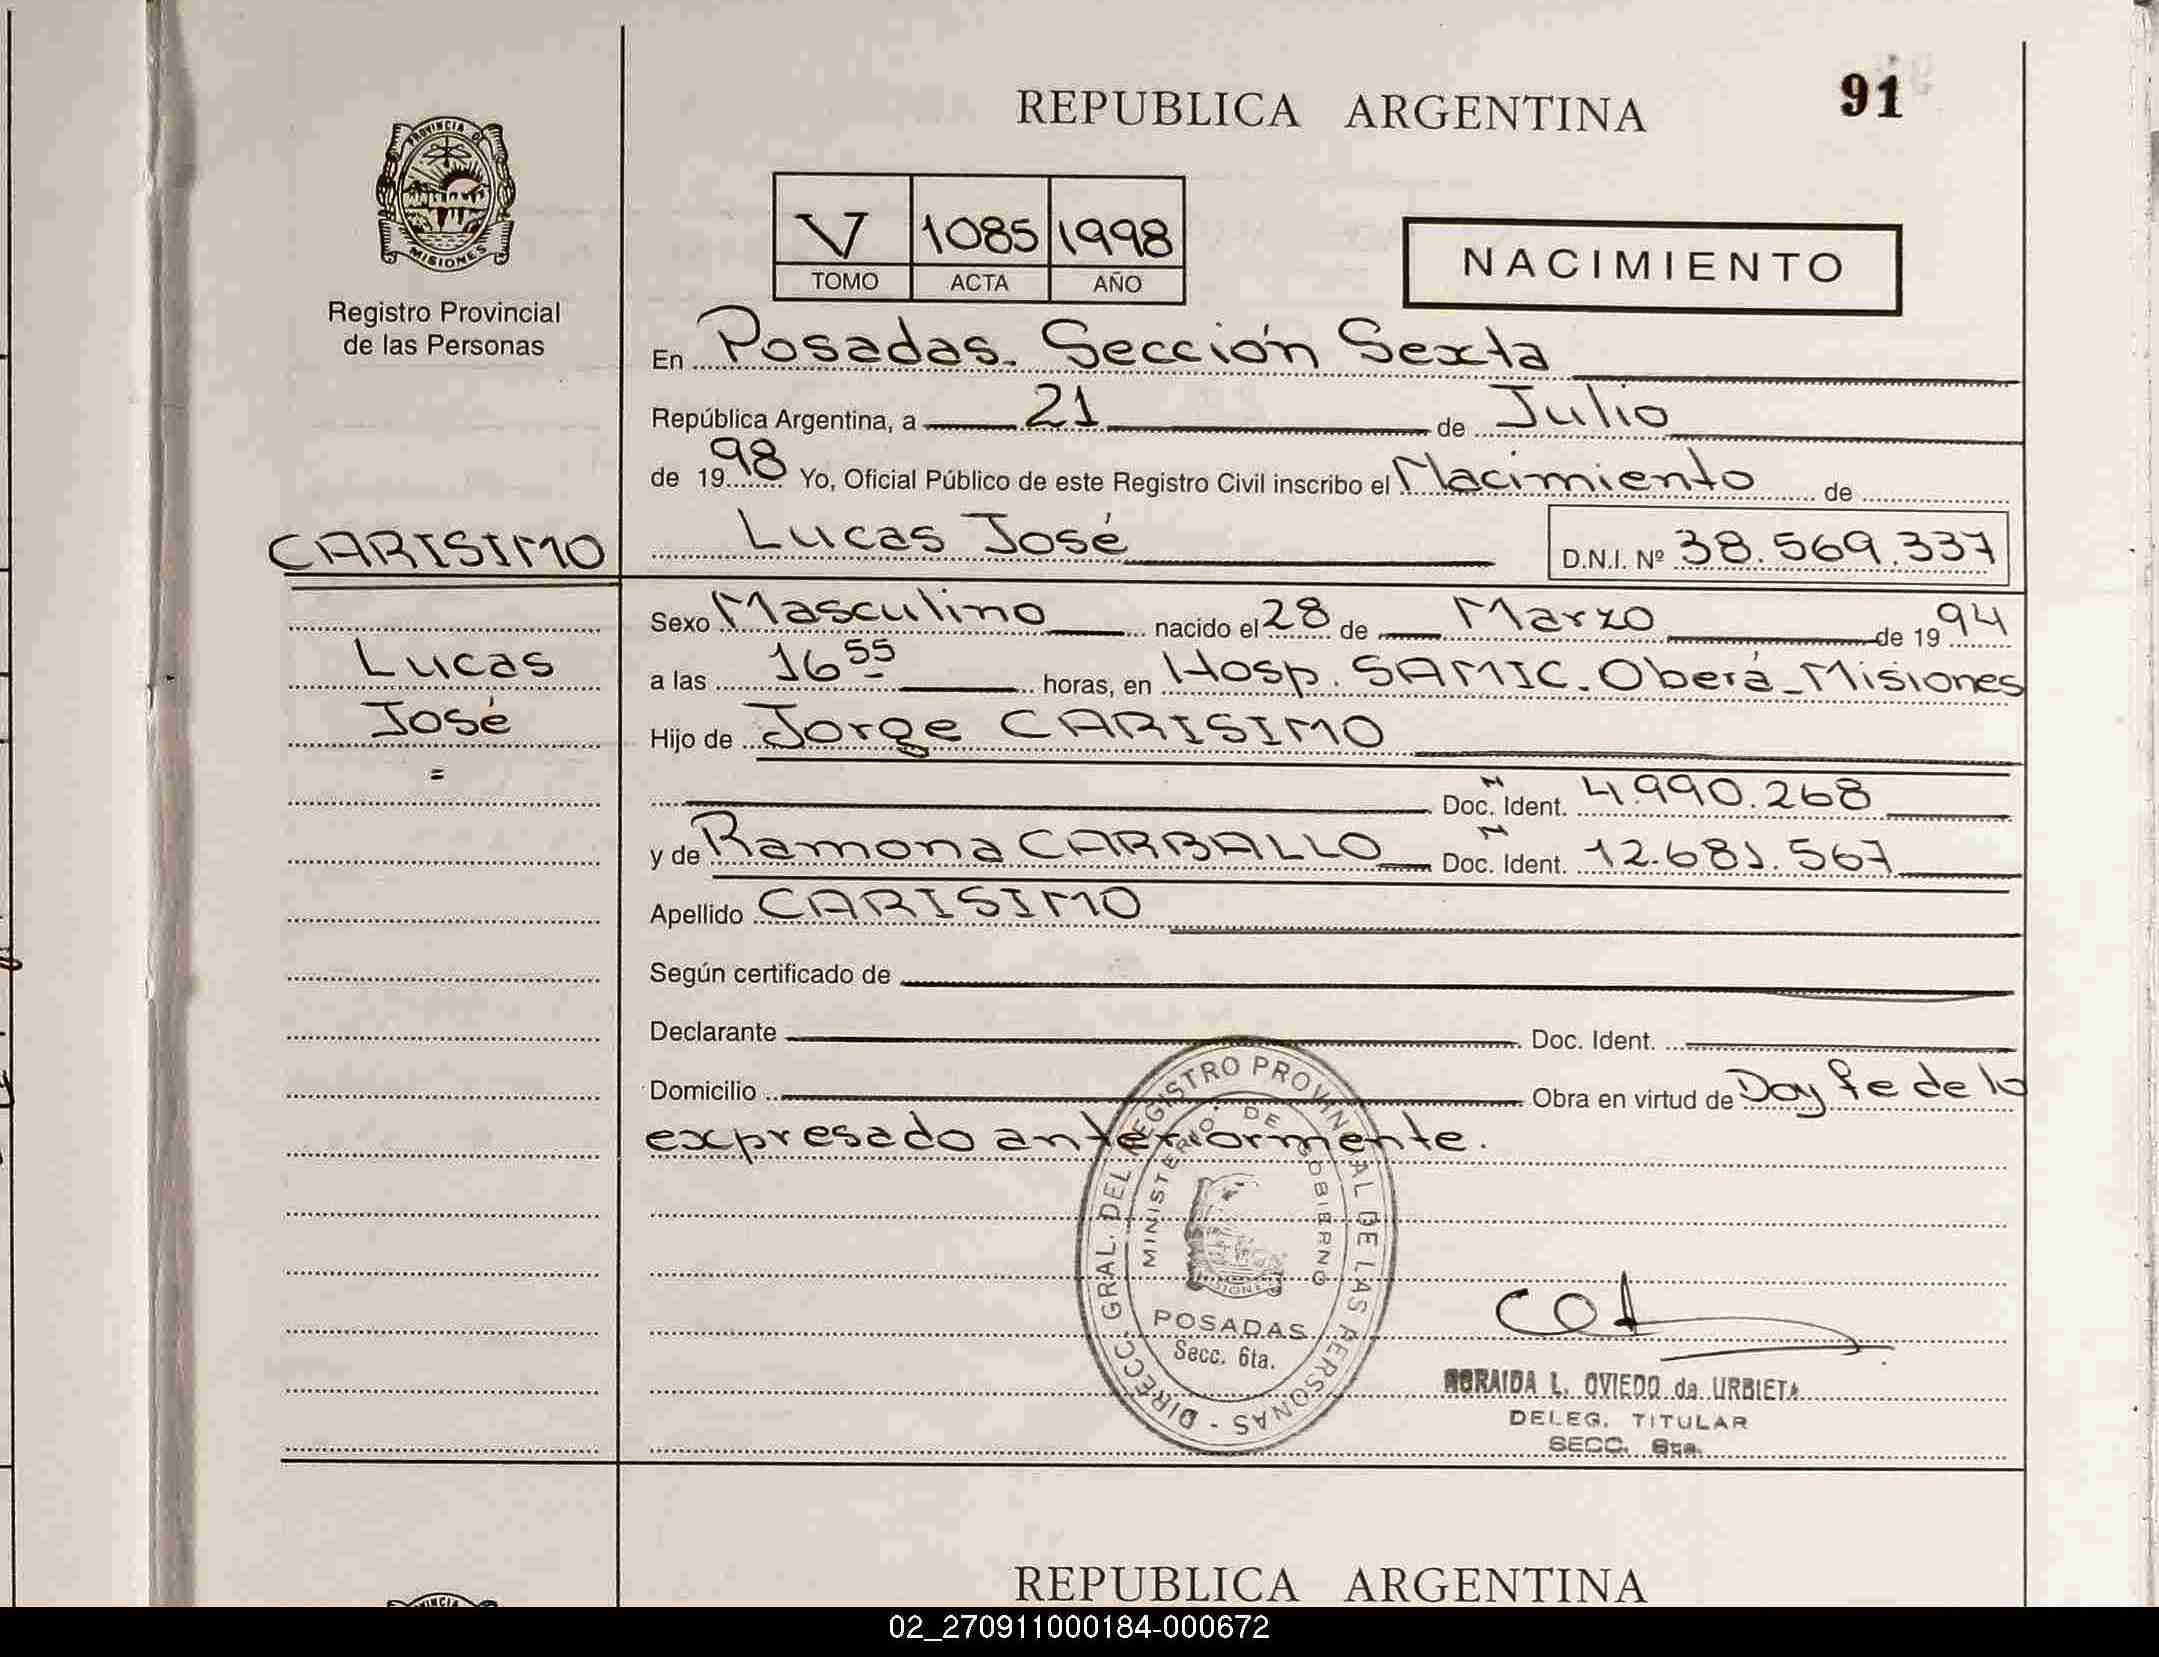 REPUBLICA ARGENTINA
91
PROVINCIA DE
MISIONES
Registro Provincial
de las Personas
V 1085 1998
TOMO ACTA AÑO
NACIMIENTO
En Posadas. Sección Sexta
República Argentina, a 21 de Julio
de 1998 Yo, Oficial Público de este Registro Civil inscribo el Nacimiento de
CARISIMO
Lucas José D.N.I. Nº 38.569.337
Sexo Masculino nacido el 28 de Marzo de 1994
Lucas
a las 16 55 horas, en Hosp. SAMIC. Oberá - Misiones
José
Hijo de Jorge CARISIMO
=
Doc. Ident. 4.990.268
y de Ramona CARBALLO Doc. Ident. 12.681.567
Apellido CARISIMO
Según certificado de
Declarante Doc. Ident.
Domicilio Obra en virtud de Doy fe de lo
expresado anteriormente.
DIRECC. GRAL. DEL REGISTRO PROVINCIAL DE LAS PERSONAS -
MINISTERIO DE GOBIERNO
POSADAS
Secc. 6ta.
L. OVIEDO de URBIETA
DELEG. TITULAR
SECC. 6ta.
REPUBLICA ARGENTINA
02_270911000184-000672